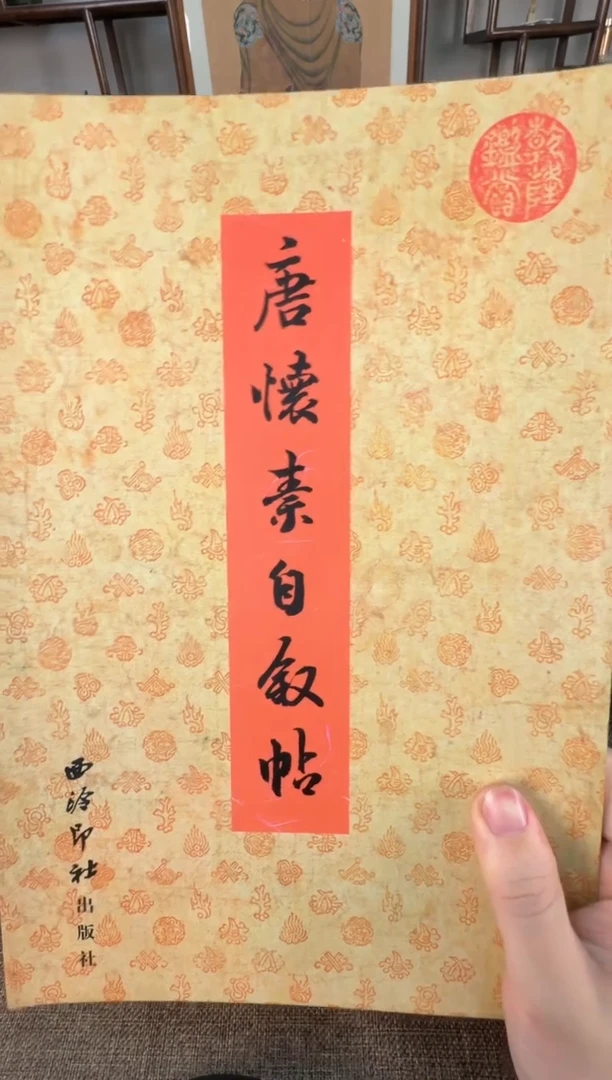 乾隆鑑賞
唐懷素自叙帖
西泠印社出版社